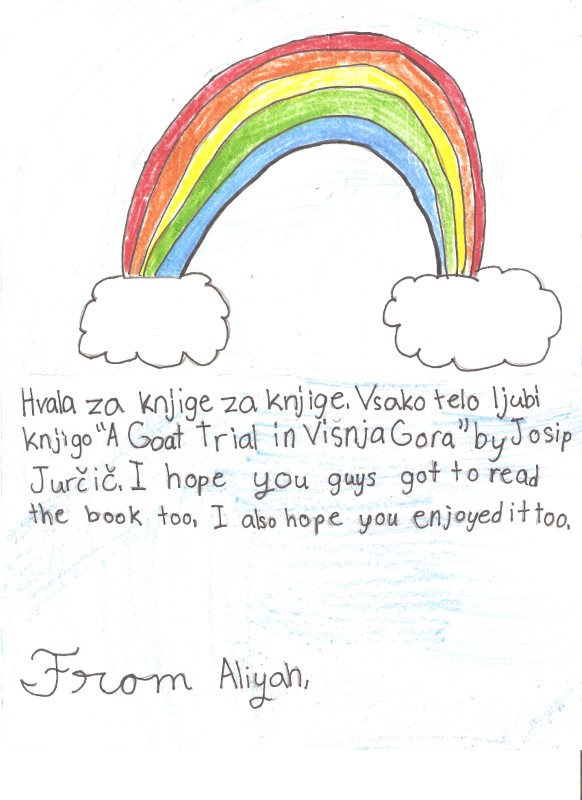 Hvala za knjige za knjige. Vsako telo ljubi
knjigo "A Goat Trial in Višnja Gora" by Josip
Jurčič. I hope you guys got to read
the book too. I also hope you enjoyed it too.
From Aliyah,